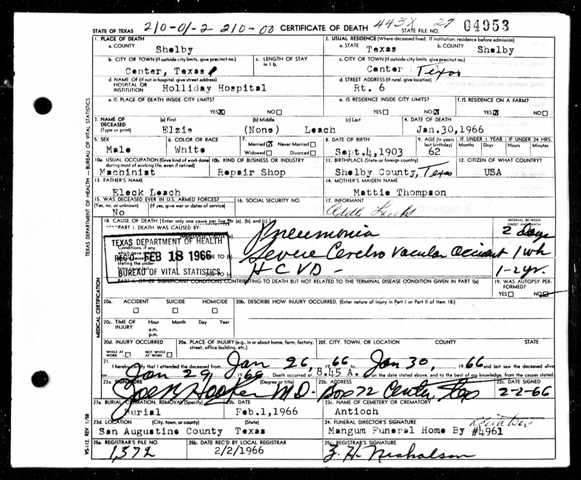 STATE OF TEXAS 210-01-2 210-00 CERTIFICATE OF DEATH 443X 27 STATE FILE NO. 04953
1. PLACE OF DEATH 2. USUAL RESIDENCE (Where deceased lived. If institution: residence before admission)
a. COUNTY Shelby a. STATE Texas b. COUNTY Shelby
b. CITY OR TOWN (If outside city limits, give precinct no.) Center, Texas c. LENGTH OF STAY in 1 b. c. CITY OR TOWN (If outside city limits, give precinct no.) Center Texas
d. NAME OF (If not in hospital, give street address) HOSPITAL OR INSTITUTION Holliday Hospital d. STREET ADDRESS (If rural, give location) Rt. 6
e. IS PLACE OF DEATH INSIDE CITY LIMITS? YES NO e. IS RESIDENCE INSIDE CITY LIMITS? YES NO f. IS RESIDENCE ON A FARM? YES NO
3. NAME OF DECEASED (Type or print) (a) First Elzie (b) Middle (None) (c) Last Leach 4. DATE OF DEATH Jan.30,1966
5. SEX Male 6. COLOR OR RACE White 7. Married Never Married Widowed Divorced 8. DATE OF BIRTH Sept.4,1903 9. AGE (In years last birthday) 62 IF UNDER 1 YEAR Months Days IF UNDER 24 HRS. Hours Minutes
10a. USUAL OCCUPATION (Give kind of work done Machinist 10b. KIND OF BUSINESS OR INDUSTRY Repair Shop 11. BIRTHPLACE (State or foreign country) Shelby County, Texas 12. CITIZEN OF WHAT COUNTRY? USA
13. FATHER'S NAME Eleck Leach 14. MOTHER'S MAIDEN NAME Mattie Thompson
15. WAS DECEASED EVER IN U.S. ARMED FORCES? (Yes, no, or unknown) (If yes, give war or dates of service) No 16. SOCIAL SECURITY NO. 17. INFORMANT
18. CAUSE OF DEATH [Enter only one cause per line for (a), (b), and (c).] INTERVAL BETWEEN
PART I. DEATH WAS CAUSED BY: Pneumonia 2 days
TEXAS DEPARTMENT OF HEALTH
REC'D FEB 18 1966
BUREAU OF VITAL STATISTICS
Severe Cerebro Vascular Accident 1 wk
HCVD - 1-2 yr.
OTHER SIGNIFICANT CONDITIONS CONTRIBUTING TO DEATH BUT NOT RELATED TO THE TERMINAL DISEASE CONDITION GIVEN IN PART I(a) 19. WAS AUTOPSY PERFORMED? YES NO
20a. ACCIDENT SUICIDE HOMICIDE 20b. DESCRIBE HOW INJURY OCCURRED. (Enter nature of injury in Part I or Part II of item 18.)
20c. TIME OF INJURY Hour Month Day Year a.m. p.m.
20d. INJURY OCCURRED WHILE AT WORK NOT WHILE AT WORK 20e. PLACE OF INJURY (e.g., in or about home, farm, factory, street, office building, etc.) 20f. CITY, TOWN, OR LOCATION COUNTY STATE
21. I hereby certify that I attended the deceased from Jan 26, 66 Jan 30, 66 and last saw the deceased alive
Jan 29 66 Death occurred at 8:45 A. m. on the date stated above, and to the best of my knowledge, from the causes stated
22a. SIGNATURE (Degree or title) M.D. 22b. ADDRESS Box 72 Center Tex 22c. DATE SIGNED 2-2-66
23a. BURIAL, CREMATION, REMOVAL (Specify) Burial 23b. DATE Feb.1,1966 23c. NAME OF CEMETERY OR CREMATORY Antioch
23d. LOCATION (City, town, or county) (State) San Augustine County Texas 24. FUNERAL DIRECTOR'S SIGNATURE Mangum Funeral Home By #4961
25a. REGISTRAR'S FILE NO. 1372 25b. DATE REC'D BY LOCAL REGISTRAR 2/2/1966 25c. REGISTRAR'S SIGNATURE Z. H. Nicholson
TEXAS DEPARTMENT OF HEALTH - BUREAU OF VITAL STATISTICS
MEDICAL CERTIFICATION
VS-112 REV. 1/58